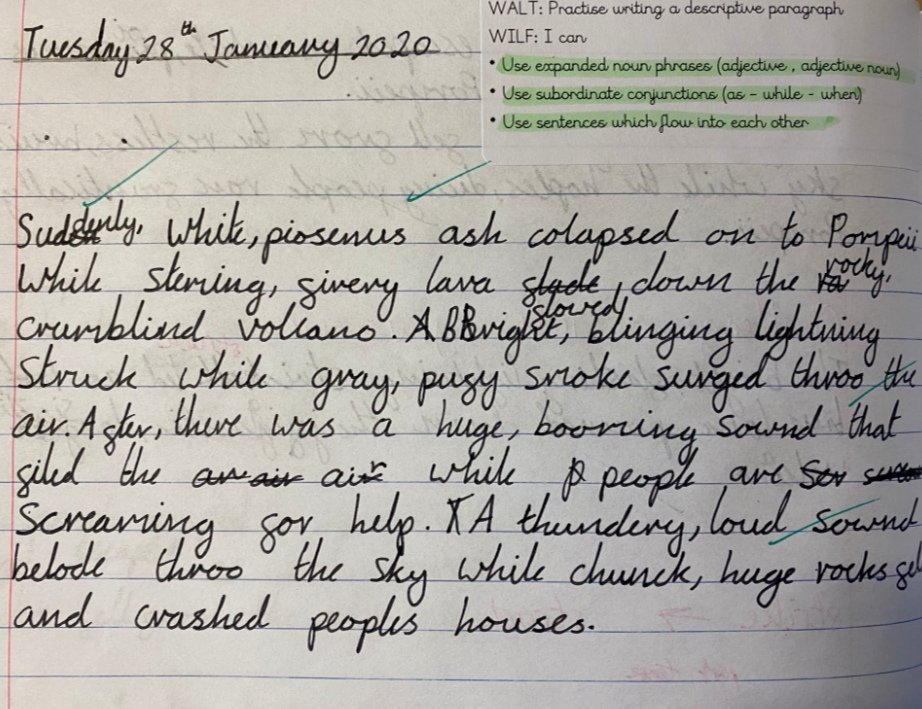 WALT: Practise writing a descriptive paragraph
WILF: I can
• Use expanded noun phrases (adjective, adjective noun)
• Use subordinate conjunctions (as - while - when)
• Use sentences which flow into each other
Tuesday 28th January 2020
Suddenly, White, piosenus ash colapsed on to Pompeii
While steming, firery lava slowed, down the rocky,
crumblind volcano. A BBright, blinging lightning
Struck while gray, pufy smoke surged throo the
air. After, there was a huge, booming sound that
filed the air while people are
Screaming for help. A thundery, loud sound
belode throo the sky while chunck, huge rocks fel
and crashed peoples houses.